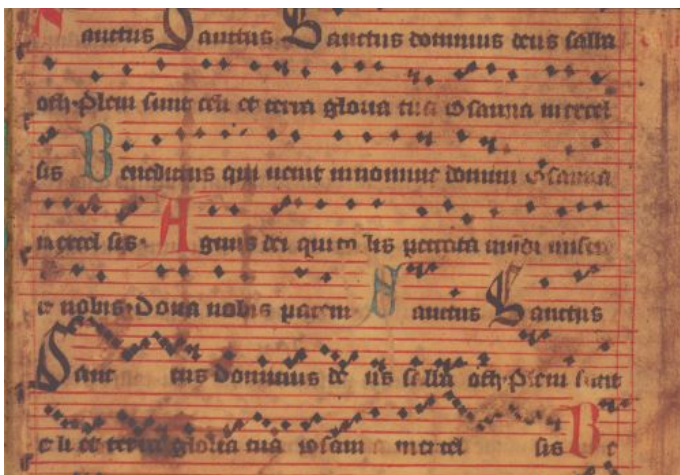 Sanctus Sanctus Sanctus dominus deus saba
oth. Pleni sunt celi et terra gloria tua Osanna in excel
sis Benedictus qui uenit in nomine domini Osanna
in excel sis. Agnus dei qui tol lis peccata mundi misere
e nobis. Dona nobis pacem Sanctus Sanctus
Sanc tus dominus de us saba oth. Pleni sunt
ce li et terra gloria tua osan a in excel sis Be